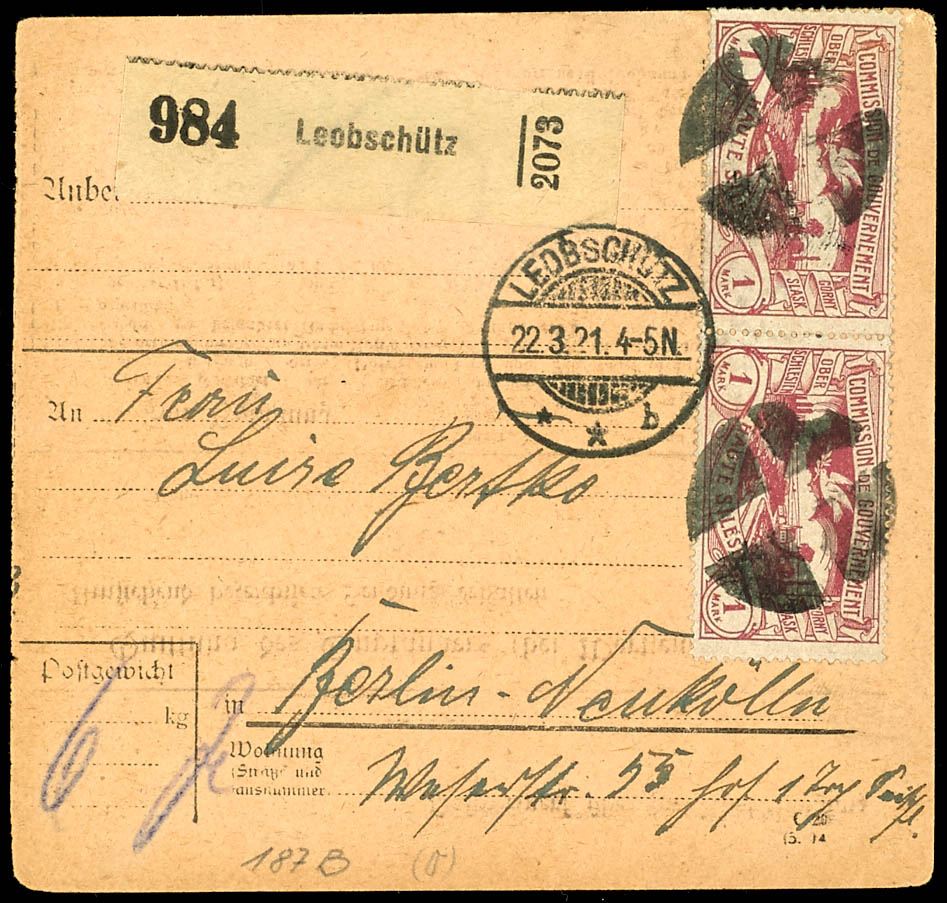 984 Leobschütz 2073
Anbei
LEOBSCHÜTZ
22.3.21.4-5N.
* * b
COMMISSION DE GOUVERNEMENT
HAUTE SILÉSIE
OBER SCHLESIEN
GÓRNY ŚLĄSK
1 MARK
1 MARK
COMMISSION DE GOUVERNEMENT
HAUTE SILÉSIE
OBER SCHLESIEN
GÓRNY ŚLĄSK
1 MARK
1 MARK
An Frau
Luise Bertko
Postgewicht
6 kg
in Berlin-Neukölln
Wohnung
(Straße und
Hausnummer
Weserstr. 55 Hof 1 Trp
187 B